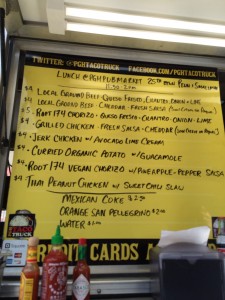 TWITTER: @PGHTACOTRUCK FACEBOOK.COM/PGHTACOTRUCK
LUNCH @ PGH PUBMARKET 25TH BTWN PENN & SMALLMAN
11:30 2PM
$4 LOCAL GROUND BEEF - QUESO FRESCO, CILANTRO, ONION + LIME
$4 LOCAL GROUND BEEF - CHEDDAR - FRESH SALSA
$5 ROOT 174 CHORIZO - QUESO FRESCO - CILANTRO - ONION - LIME
$4 GRILLED CHICKEN - FRESH SALSA - CHEDDAR
$4 JERK CHICKEN W/ AVOCADO LIME CREAM
$4 CURRIED ORGANIC POTATO W/ GUACAMOLE
$4 ROOT 174 VEGAN CHORIZO W/ PINEAPPLE-PEPPER SALSA
$4 THAI PEANUT CHICKEN W/ SWEET CHILI SLAW
MEXICAN COKE $2.50
ORANGE SAN PELLEGRINO $2.00
WATER $1.00
TACO
TRUCK
CARDS